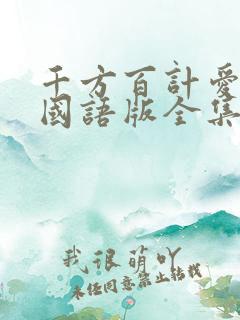 千方百計愛
國語版全集
我很萌吖
未经同意禁止转载